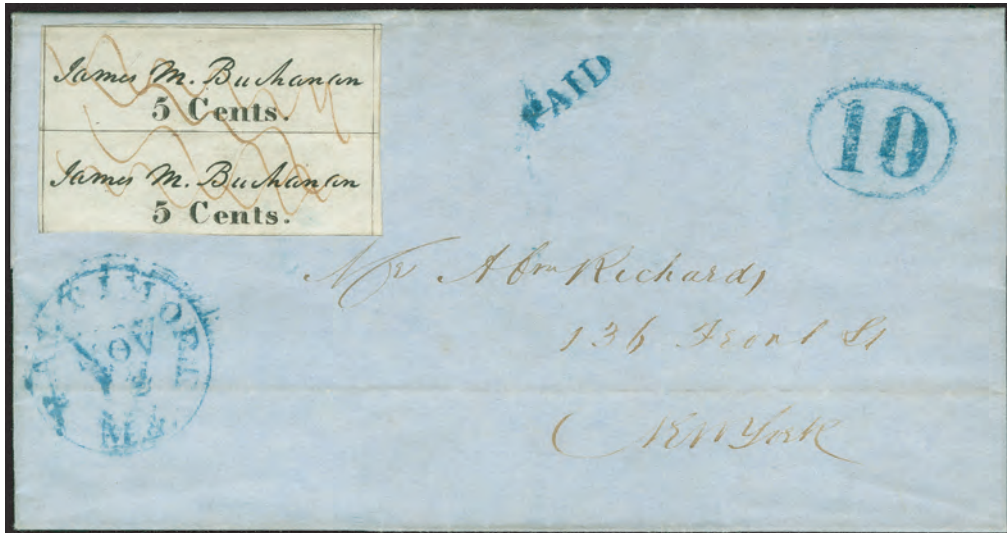 James M. Buchanan
5 Cents.
James M. Buchanan
5 Cents.
PAID
10
BALTIMORE
NOV
Md.
Mr Abm Richards
136 Front St
New York